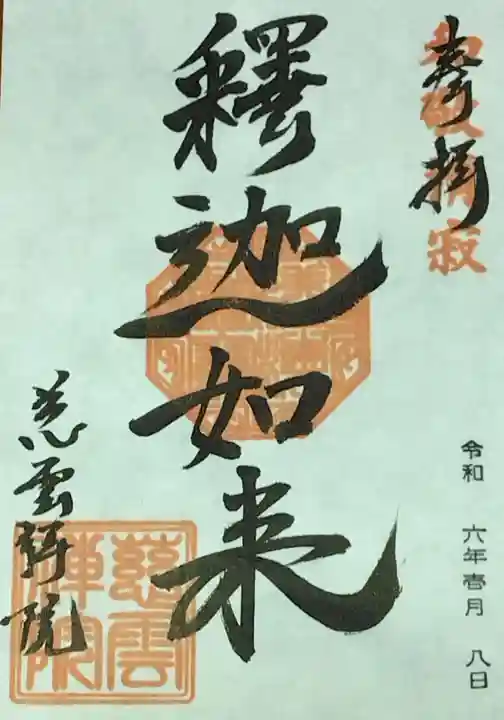 奉拝
和敬清寂
令和 六年壱月 八日
釋迦如来
慈雲禅院
慈雲
禅院